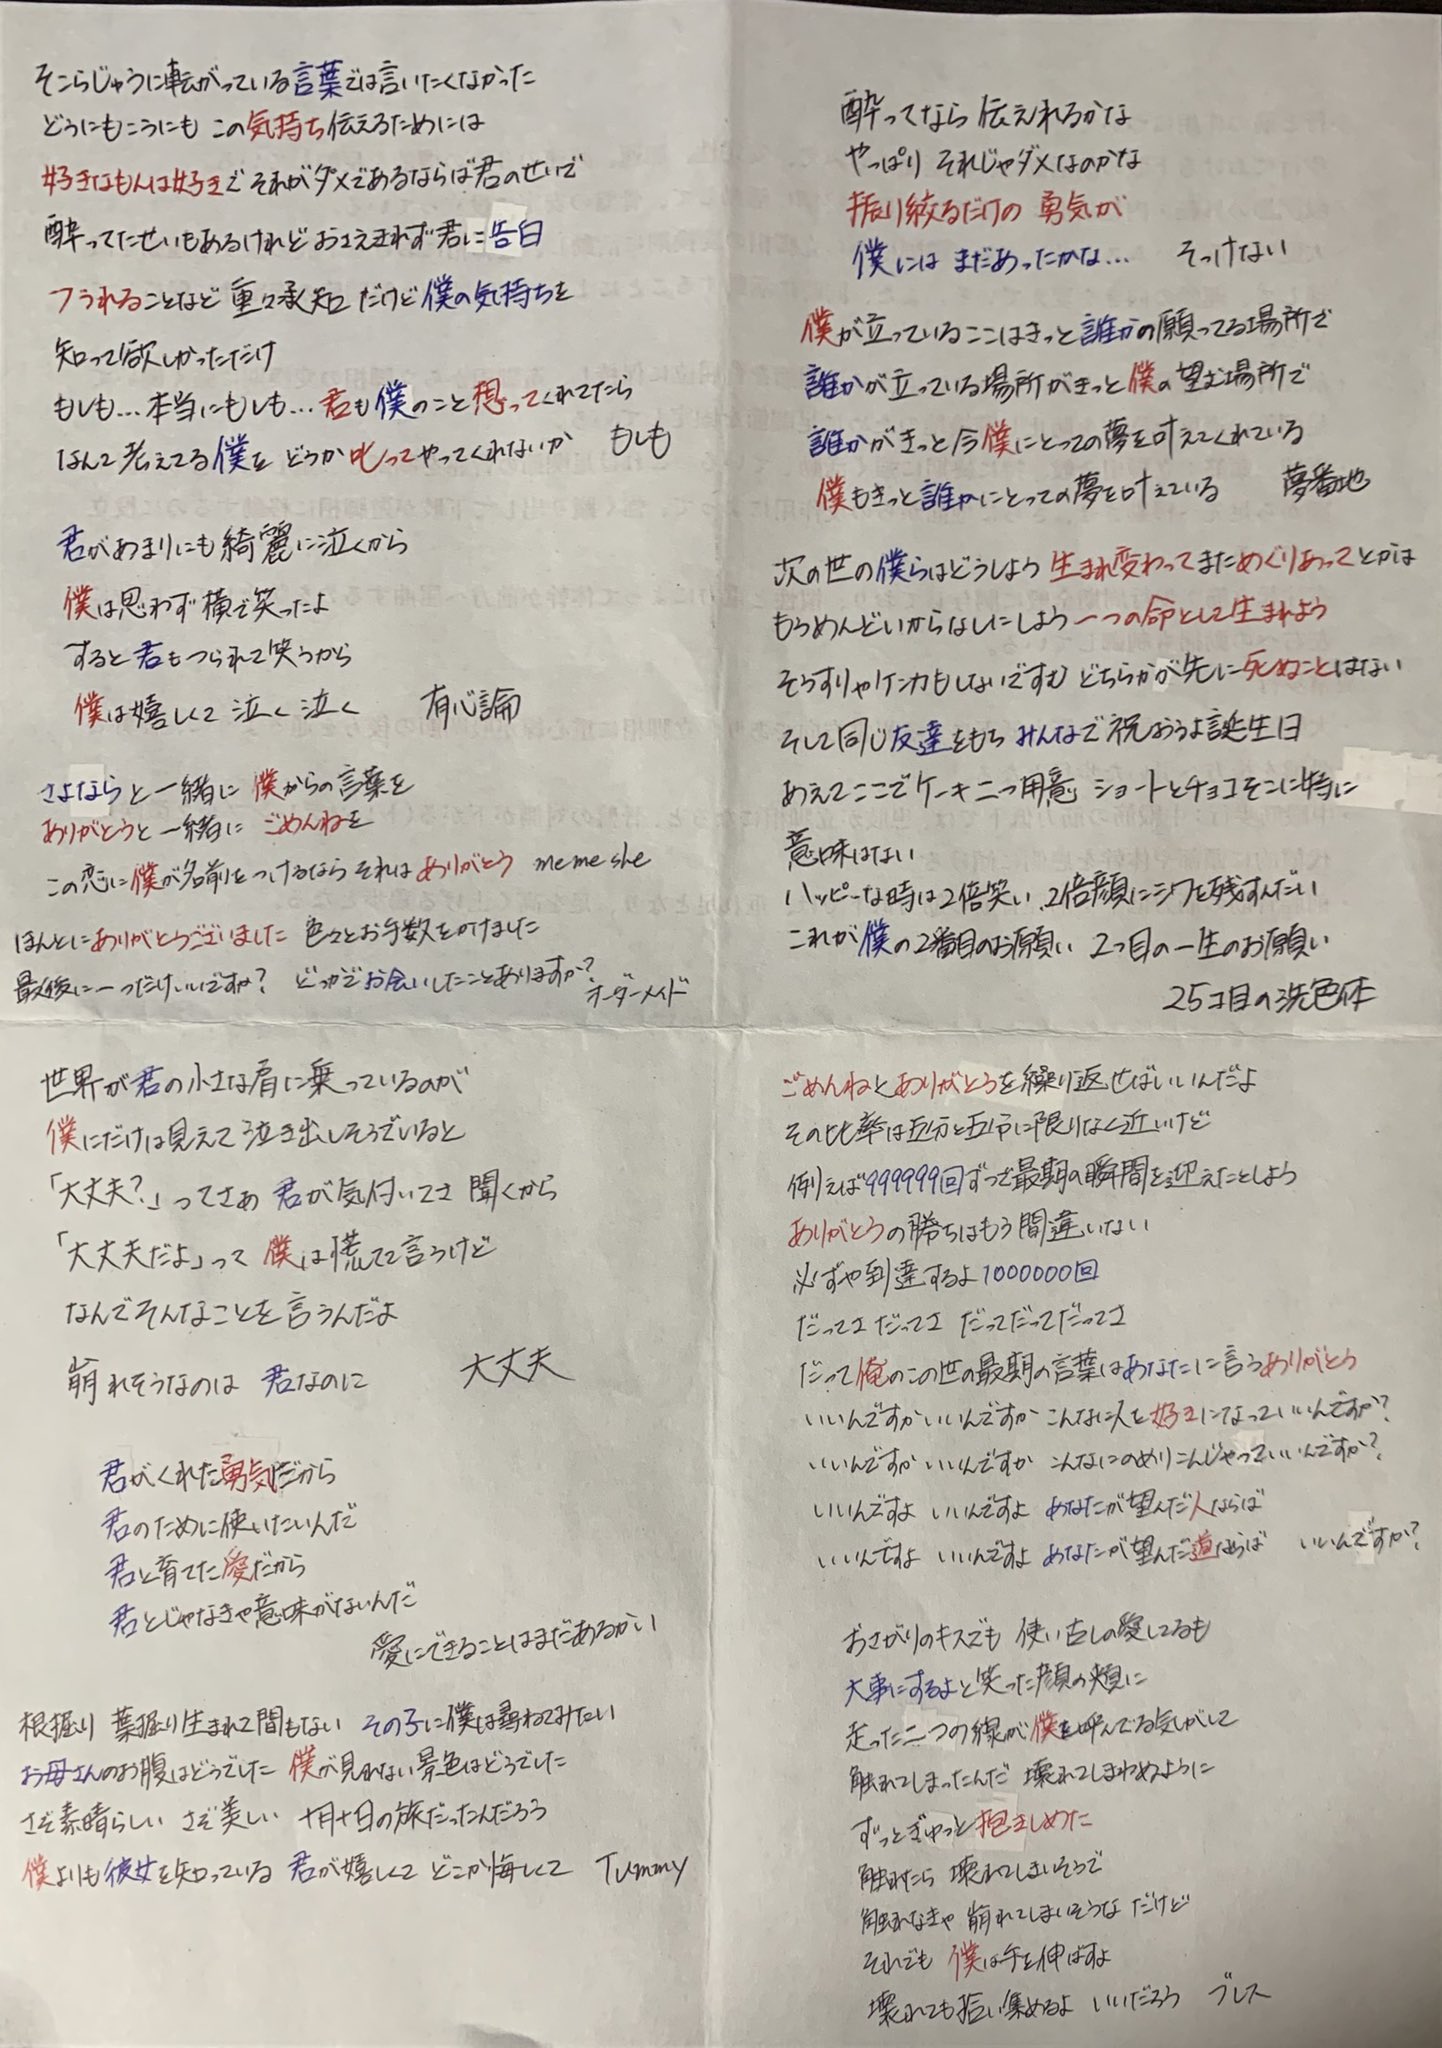 そこらじゅうに転がっている言葉では言いたくなかった
どうにもこうにも この気持ち伝えるためには
好きなもんは好きで それがダメであるならば君のせいで
酔ってたせいもあるけれど おさえきれず君に告白
フラれることなど 重々承知 だけど僕の気持ちを
知って欲しかっただけ
もしも…本当にもしも…君も僕のこと想ってくれてたら
なんて考えてる僕を どうか叱ってやってくれないか もしも
君があまりにも綺麗に泣くから
僕は思わず横で笑ったよ
すると君もつられて笑うから
僕は嬉しくて 泣く 泣く 有心論
さよならと一緒に 僕からの言葉を
ありがとうと一緒に ごめんねを
この恋に僕が名前をつけるなら それは ありがとう me me she
ほんとにありがとうございました 色々とお手数をかけました
最後に一つだけいいですか? どっかでお会いしたことありますか?
オーダーメイド
世界が君の小さな肩に乗っているのが
僕にだけは見えて泣き出しそうでいると
「大丈夫?」ってさぁ 君が気付いてさ 聞くから
「大丈夫だよ」って 僕は慌てて言うけど
なんでそんなことを言うんだよ
崩れそうなのは 君なのに 大丈夫
君がくれた勇気だから
君のために使いたいんだ
君と育てた愛だから
君とじゃなきゃ意味がないんだ
愛にできることはまだあるかい
根掘り 葉掘り生まれて間もない その子に僕は尋ねてみたい
お母さんのお腹はどうでした 僕が見れない景色はどうでした
さぞ素晴らしい さぞ美しい 十月十日の旅だったんだろう
僕よりも彼女を知っている 君が嬉しくて どこか悔しくて Tummy
酔ってなら 伝えれるかな
やっぱり それじゃダメなのかな
振り絞るだけの 勇気が
僕には まだあったかな… そっけない
僕が立っているここはきっと誰かの願ってる場所で
誰かが立っている場所がきっと僕の望む場所で
誰かがきっと今僕にとっての夢を叶えてくれている
僕もきっと誰かにとっての夢を叶えている 夢番地
次の世の僕らはどうしよう 生まれ変わってまためぐりあってとかは
もうめんどいからなしにしよう 一つの命として生まれよう
そうすりゃケンカもしないですむ どちらかが先に死ぬことはない
そして同じ友達をもち みんなで祝おうよ誕生日
あえてここでケーキ二つ用意 ショートとチョコそこに特に
意味はない
ハッピーな時は2倍笑い 2倍顔にシワを残すんだい
これが僕の2番目のお願い 2つ目の一生のお願い
25コ目の染色体
ごめんねとありがとうを繰り返せばいいんだよ
その比率は五分と五分に限りなく近いけど
例えば999999回ずつで最期の瞬間を迎えたとしよう
ありがとうの勝ちはもう間違いない
必ずや到達するよ1000000回
だってさ だってさ だってだってだってさ
だって俺のこの世の最期の言葉はあなたに言うありがとう
いいんですか いいんですか こんなに人を好きになっていいんですか?
いいんですか いいんですか こんなにのめりこんじゃっていいんですか?
いいんですよ いいんですよ あなたが望んだ人ならば
いいんですよ いいんですよ あなたが望んだ道ならば いいんですか?
おさがりのキスでも 使い古しの愛してるも
大事にするよと笑った顔の頬に
走った二つの線が僕を呼んでる気がして
触れてしまったんだ 壊れてしまわぬように
ずっとぎゅっと抱きしめた
触れたら 壊れてしまいそうで
触れなきゃ 崩れてしまいそうな だけど
それでも 僕は手を伸ばすよ
壊れても拾い集めるよ いいだろう ブレス